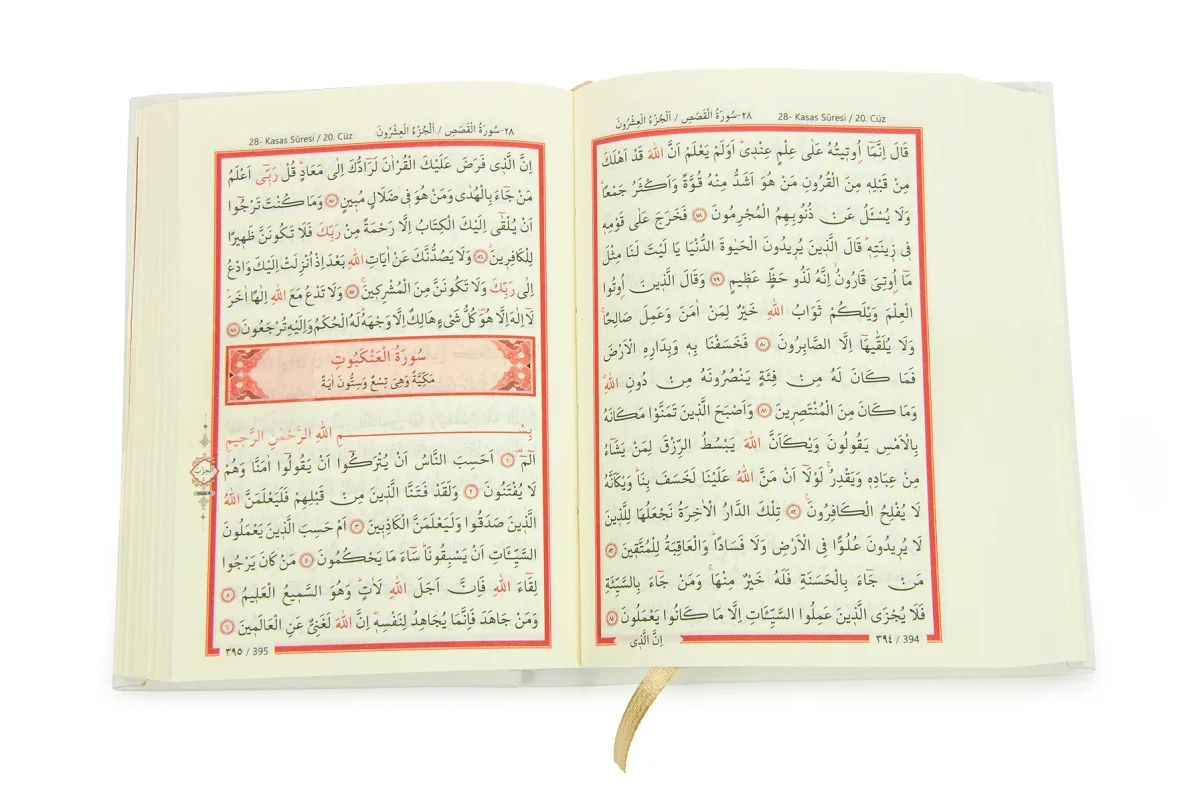 ٢٨-سُورَةُ الْقَصَصِ / اَلْجُزْءُ الْعِشْرُونَ 28- Kasas Sûresi / 20. Cüz
قَالَ اِنَّمَٓا اُو۫ت۪يتُهُ عَلٰى عِلْمٍ عِنْد۪يۜ اَوَلَمْ يَعْلَمْ اَنَّ اللّٰهَ قَدْ اَهْلَكَ
مِنْ قَبْلِه۪ مِنَ الْقُرُونِ مَنْ هُوَ اَشَدُّ مِنْهُ قُوَّةً وَاَكْثَرُ جَمْعاًۜ
وَلَا يُسْـَٔلُ عَنْ ذُنُوبِهِمُ الْمُجْرِمُونَ ﴿٧٨﴾ فَخَرَجَ عَلٰى قَوْمِه۪
ف۪ي ز۪ينَتِه۪ۜ قَالَ الَّذ۪ينَ يُر۪يدُونَ الْحَيٰوةَ الدُّنْيَا يَا لَيْتَ لَنَا مِثْلَ
مَٓا اُو۫تِيَ قَارُونُۙ اِنَّهُ لَذُو حَظٍّ عَظ۪يمٍ ﴿٧٩﴾ وَقَالَ الَّذ۪ينَ اُو۫تُوا
الْعِلْمَ وَيْلَكُمْ ثَوَابُ اللّٰهِ خَيْرٌ لِمَنْ اٰمَنَ وَعَمِلَ صَالِحاًۚ
وَلَا يُلَقّٰيهَٓا اِلَّا الصَّابِرُونَ ﴿٨٠﴾ فَخَسَفْنَا بِه۪ وَبِدَارِهِ الْاَرْضَ
فَمَا كَانَ لَهُ مِنْ فِئَةٍ يَنْصُرُونَهُ مِنْ دُونِ اللّٰهِۗ
وَمَا كَانَ مِنَ الْمُنْتَصِر۪ينَ ﴿٨١﴾ وَاَصْبَحَ الَّذ۪ينَ تَمَنَّوْا مَكَانَهُ
بِالْاَمْسِ يَقُولُونَ وَيْكَاَنَّ اللّٰهَ يَبْسُطُ الرِّزْقَ لِمَنْ يَشَٓاءُ
مِنْ عِبَادِه۪ وَيَقْدِرُۚ لَوْلَٓا اَنْ مَنَّ اللّٰهُ عَلَيْنَا لَخَسَفَ بِنَاۜ وَيْكَاَنَّهُ
لَا يُفْلِحُ الْكَافِرُونَ۟ ﴿٨٢﴾ تِلْكَ الدَّارُ الْاٰخِرَةُ نَجْعَلُهَا لِلَّذ۪ينَ
لَا يُر۪يدُونَ عُلُواًّ فِي الْاَرْضِ وَلَا فَسَاداًۜ وَالْعَاقِبَةُ لِلْمُتَّق۪ينَ ﴿٨٣﴾
مَنْ جَٓاءَ بِالْحَسَنَةِ فَلَهُ خَيْرٌ مِنْهَاۚ وَمَنْ جَٓاءَ بِالسَّيِّئَةِ
فَلَا يُجْزَى الَّذ۪ينَ عَمِلُوا السَّيِّـَٔاتِ اِلَّا مَا كَانُوا يَعْمَلُونَ ﴿٨٤﴾
اِنَّ الَّذ۪ي
٣٩٤ / 394
28- Kasas Sûresi / 20. Cüz ٢٨-سُورَةُ الْقَصَصِ / اَلْجُزْءُ الْعِشْرُونَ
اِنَّ الَّذ۪ي فَرَضَ عَلَيْكَ الْقُرْاٰنَ لَرَٓادُّكَ اِلٰى مَعَادٍۜ قُلْ رَبّ۪ٓي اَعْلَمُ
مَنْ جَٓاءَ بِالْهُدٰى وَمَنْ هُوَ ف۪ي ضَلَالٍ مُب۪ينٍ ﴿٨٥﴾ وَمَا كُنْتَ تَرْجُٓوا
اَنْ يُلْقٰٓى اِلَيْكَ الْكِتَابُ اِلَّا رَحْمَةً مِنْ رَبِّكَ فَلَا تَكُونَنَّ ظَه۪يراً
لِلْكَافِر۪ينَۘ ﴿٨٦﴾ وَلَا يَصُدُّنَّكَ عَنْ اٰيَاتِ اللّٰهِ بَعْدَ اِذْ اُنْزِلَتْ اِلَيْكَ وَادْعُ
اِلٰى رَبِّكَ وَلَا تَكُونَنَّ مِنَ الْمُشْرِك۪ينَۚ ﴿٨٧﴾ وَلَا تَدْعُ مَعَ اللّٰهِ اِلٰهاً اٰخَرَۢ
لَٓا اِلٰهَ اِلَّا هُوَ۠ كُلُّ شَيْءٍ هَالِكٌ اِلَّا وَجْهَهُۜ لَهُ الْحُكْمُ وَاِلَيْهِ تُرْجَعُونَ ﴿٨٨﴾
سُورَةُ الْعَنْكَبُوتِ
مَكِّيَّةٌ وَهِيَ تِسْعٌ وَسِتُّونَ اٰيَةً
بِسْمِ اللّٰهِ الرَّحْمٰنِ الرَّح۪يمِ
الٓمٓۚ ﴿١﴾ اَحَسِبَ النَّاسُ اَنْ يُتْرَكُٓوا اَنْ يَقُولُٓوا اٰمَنَّا وَهُمْ
لَا يُفْتَنُونَ ﴿٢﴾ وَلَقَدْ فَتَنَّا الَّذ۪ينَ مِنْ قَبْلِهِمْ فَلَيَعْلَمَنَّ اللّٰهُ
الَّذ۪ينَ صَدَقُوا وَلَيَعْلَمَنَّ الْكَاذِب۪ينَ ﴿٣﴾ اَمْ حَسِبَ الَّذ۪ينَ يَعْمَلُونَ
السَّيِّـَٔاتِ اَنْ يَسْبِقُونَاۜ سَٓاءَ مَا يَحْكُمُونَ ﴿٤﴾ مَنْ كَانَ يَرْجُوا
لِقَٓاءَ اللّٰهِ فَاِنَّ اَجَلَ اللّٰهِ لَاٰتٍۜ وَهُوَ السَّم۪يعُ الْعَل۪يمُ ﴿٥﴾
وَمَنْ جَاهَدَ فَاِنَّمَا يُجَاهِدُ لِنَفْسِه۪ۜ اِنَّ اللّٰهَ لَغَنِيٌّ عَنِ الْعَالَم۪ينَ ﴿٦﴾
٣٩٥ / 395